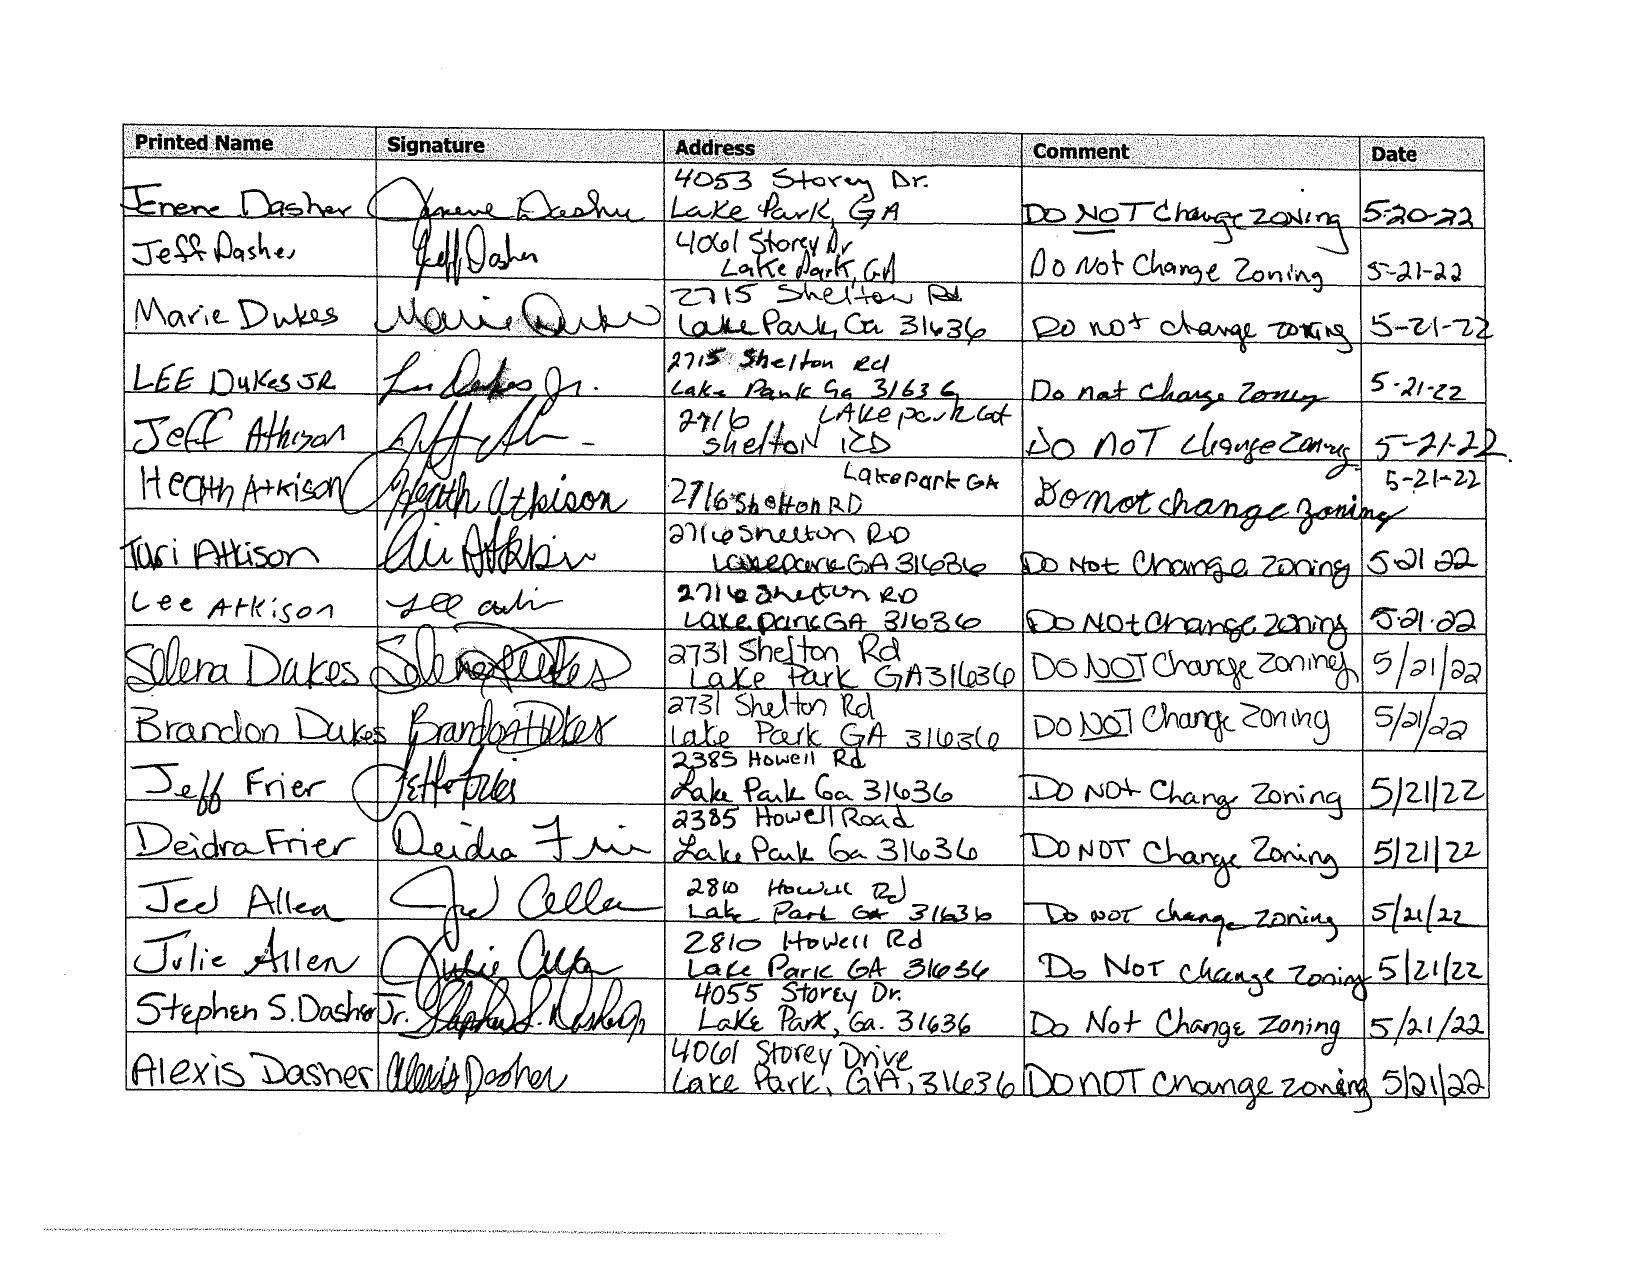 Printed Name Signature Address Comment Date
4053 Storey Dr.
Jenene Dasher Jenene Dasher Lake Park, GA DO NOT Change Zoning 5-20-22
Jeff Dasher Jeff Dasher 4061 Storey Dr
Lake Park, GA Do Not Change Zoning 5-21-22
2715 Shelton Rd
Marie Dukes Marie Dukes Lake Park, Ga 31636 Do not change zoning 5-21-22
2715 Shelton Rd
LEE Dukes JR Lee Dukes Jr. Lake Park Ga 31636 Do not Change Zoning 5-21-22
2716 LAKe park
Jeff Atkison Shelton RD Do NOT change Zoning 5-21-22
Lake park GA 5-21-22
Heath Atkison Heath Atkison 2716 Shelton RD Do not change zoning
2716 Shelton RD
Tari Atkison Lake park GA 31636 Do Not Change Zoning 5 21 22
Lee Atkison Lee 2716 Shelton RD
Lake park GA 31636 Do Not Change Zoning 5.21.22
2731 Shelton Rd
Selena Dukes Selena Dukes Lake Park GA 31636 DO NOT Change Zoning 5/21/22
2731 Shelton Rd
Brandon Dukes Brandon Dukes Lake Park GA 31636 DO NOT Change Zoning 5/21/22
2385 Howell Rd
Jeff Frier Jeff Frier Lake Park Ga 31636 DO NOt Change Zoning 5/21/22
2385 Howell Road
Deidra Frier Deidra Frier Lake Park Ga 31636 DO NOT Change Zoning 5/21/22
2810 Howell Rd
Jed Allen Jed Allen Lake Park GA 31636 Do NOT change zoning 5/21/22
2810 Howell Rd
Julie Allen Julie Allen Lake Park GA 31636 Do NOT change zoning 5/21/22
4055 Storey Dr.
Stephen S. Dasher Jr. Stephen S. Dasher Jr Lake Park, Ga. 31636 Do Not Change Zoning 5/21/22
4061 Storey Drive
Alexis Dasher Alexis Dasher Lake Park, GA, 31636 DO NOT change zoning 5/21/22